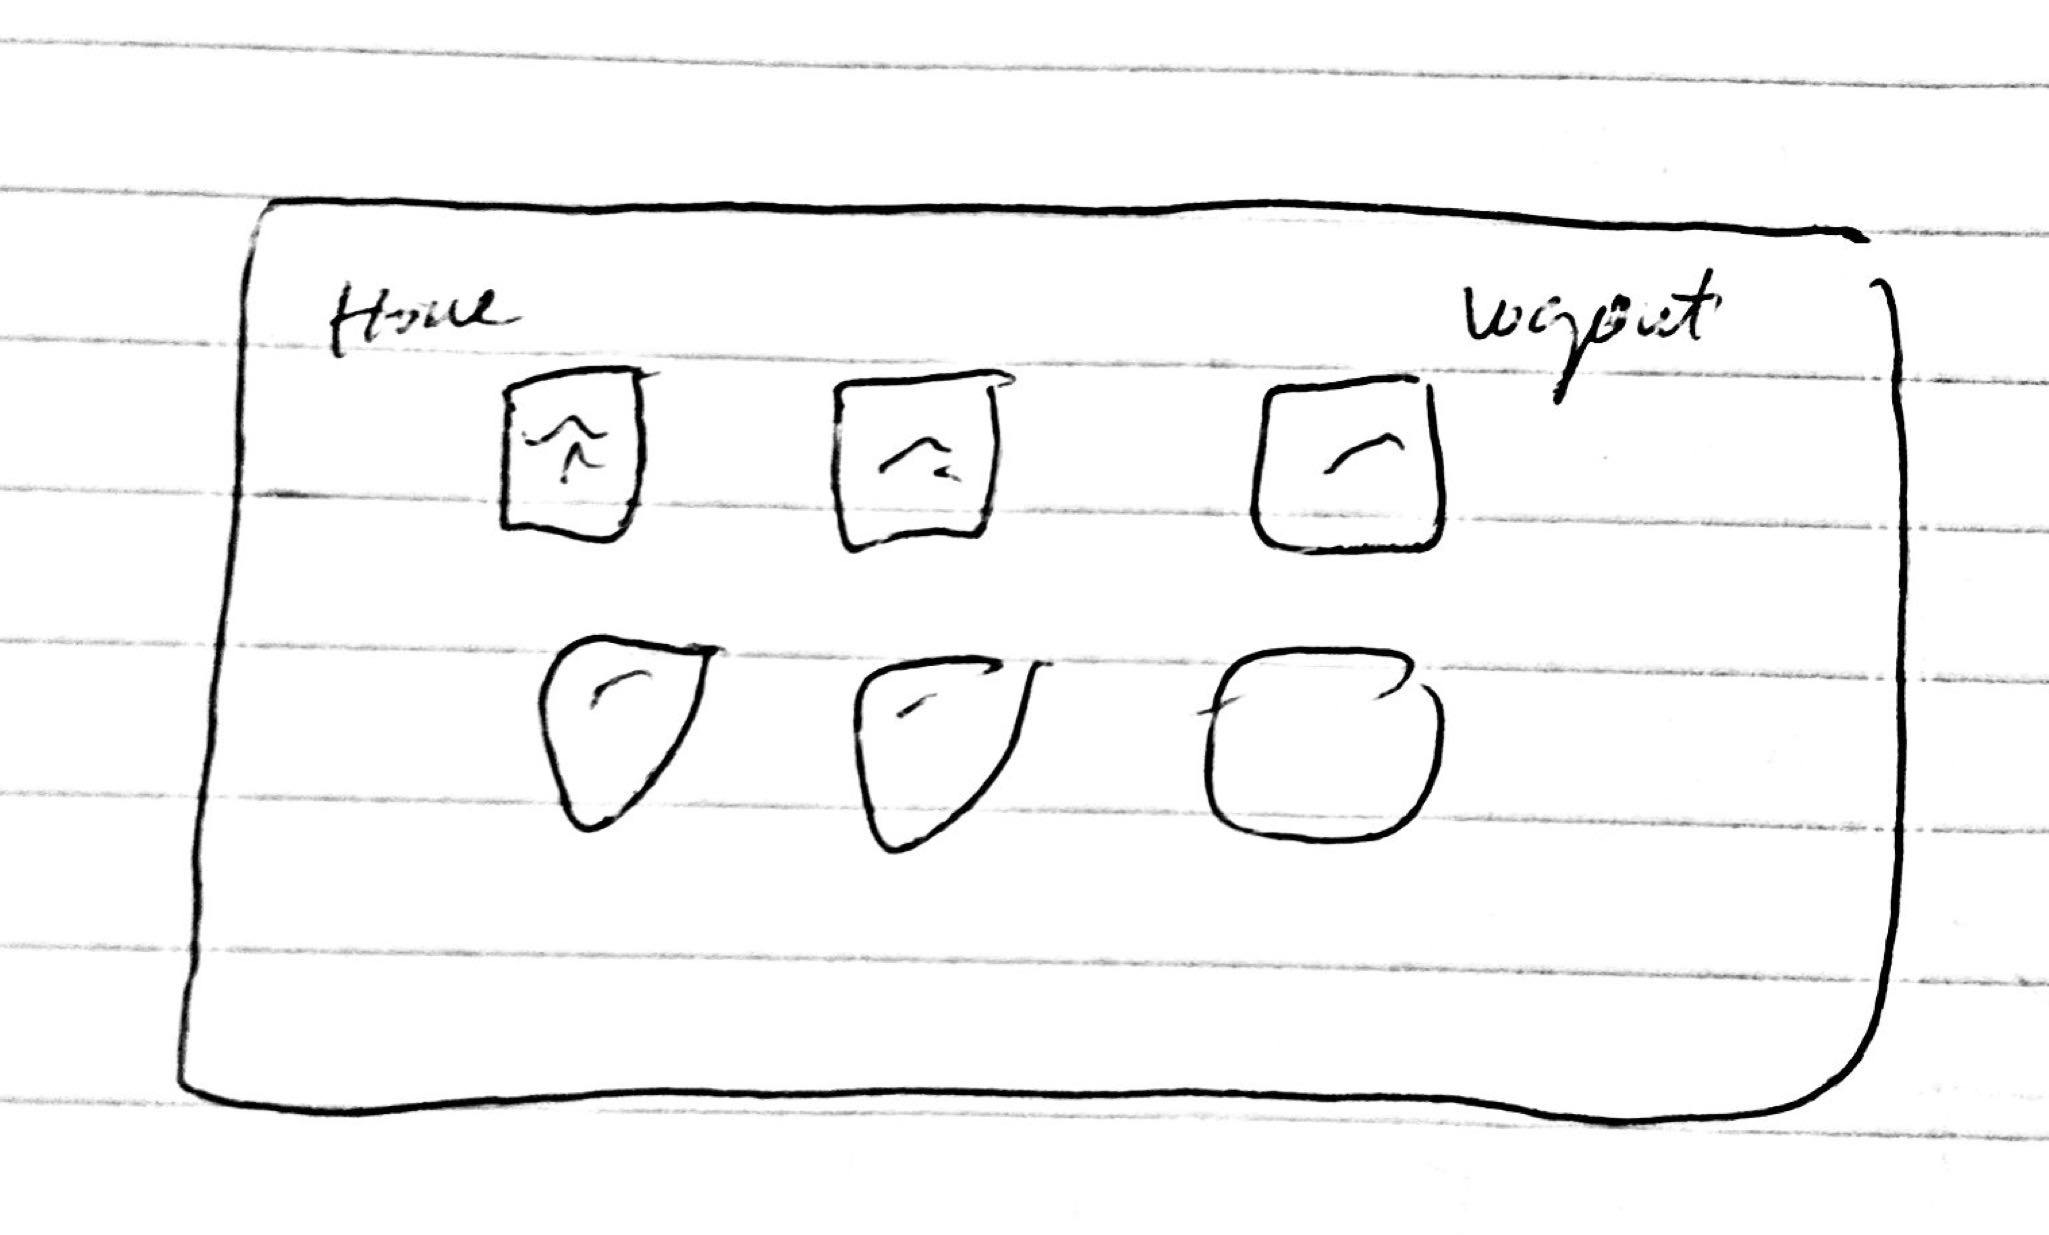 Home Logout